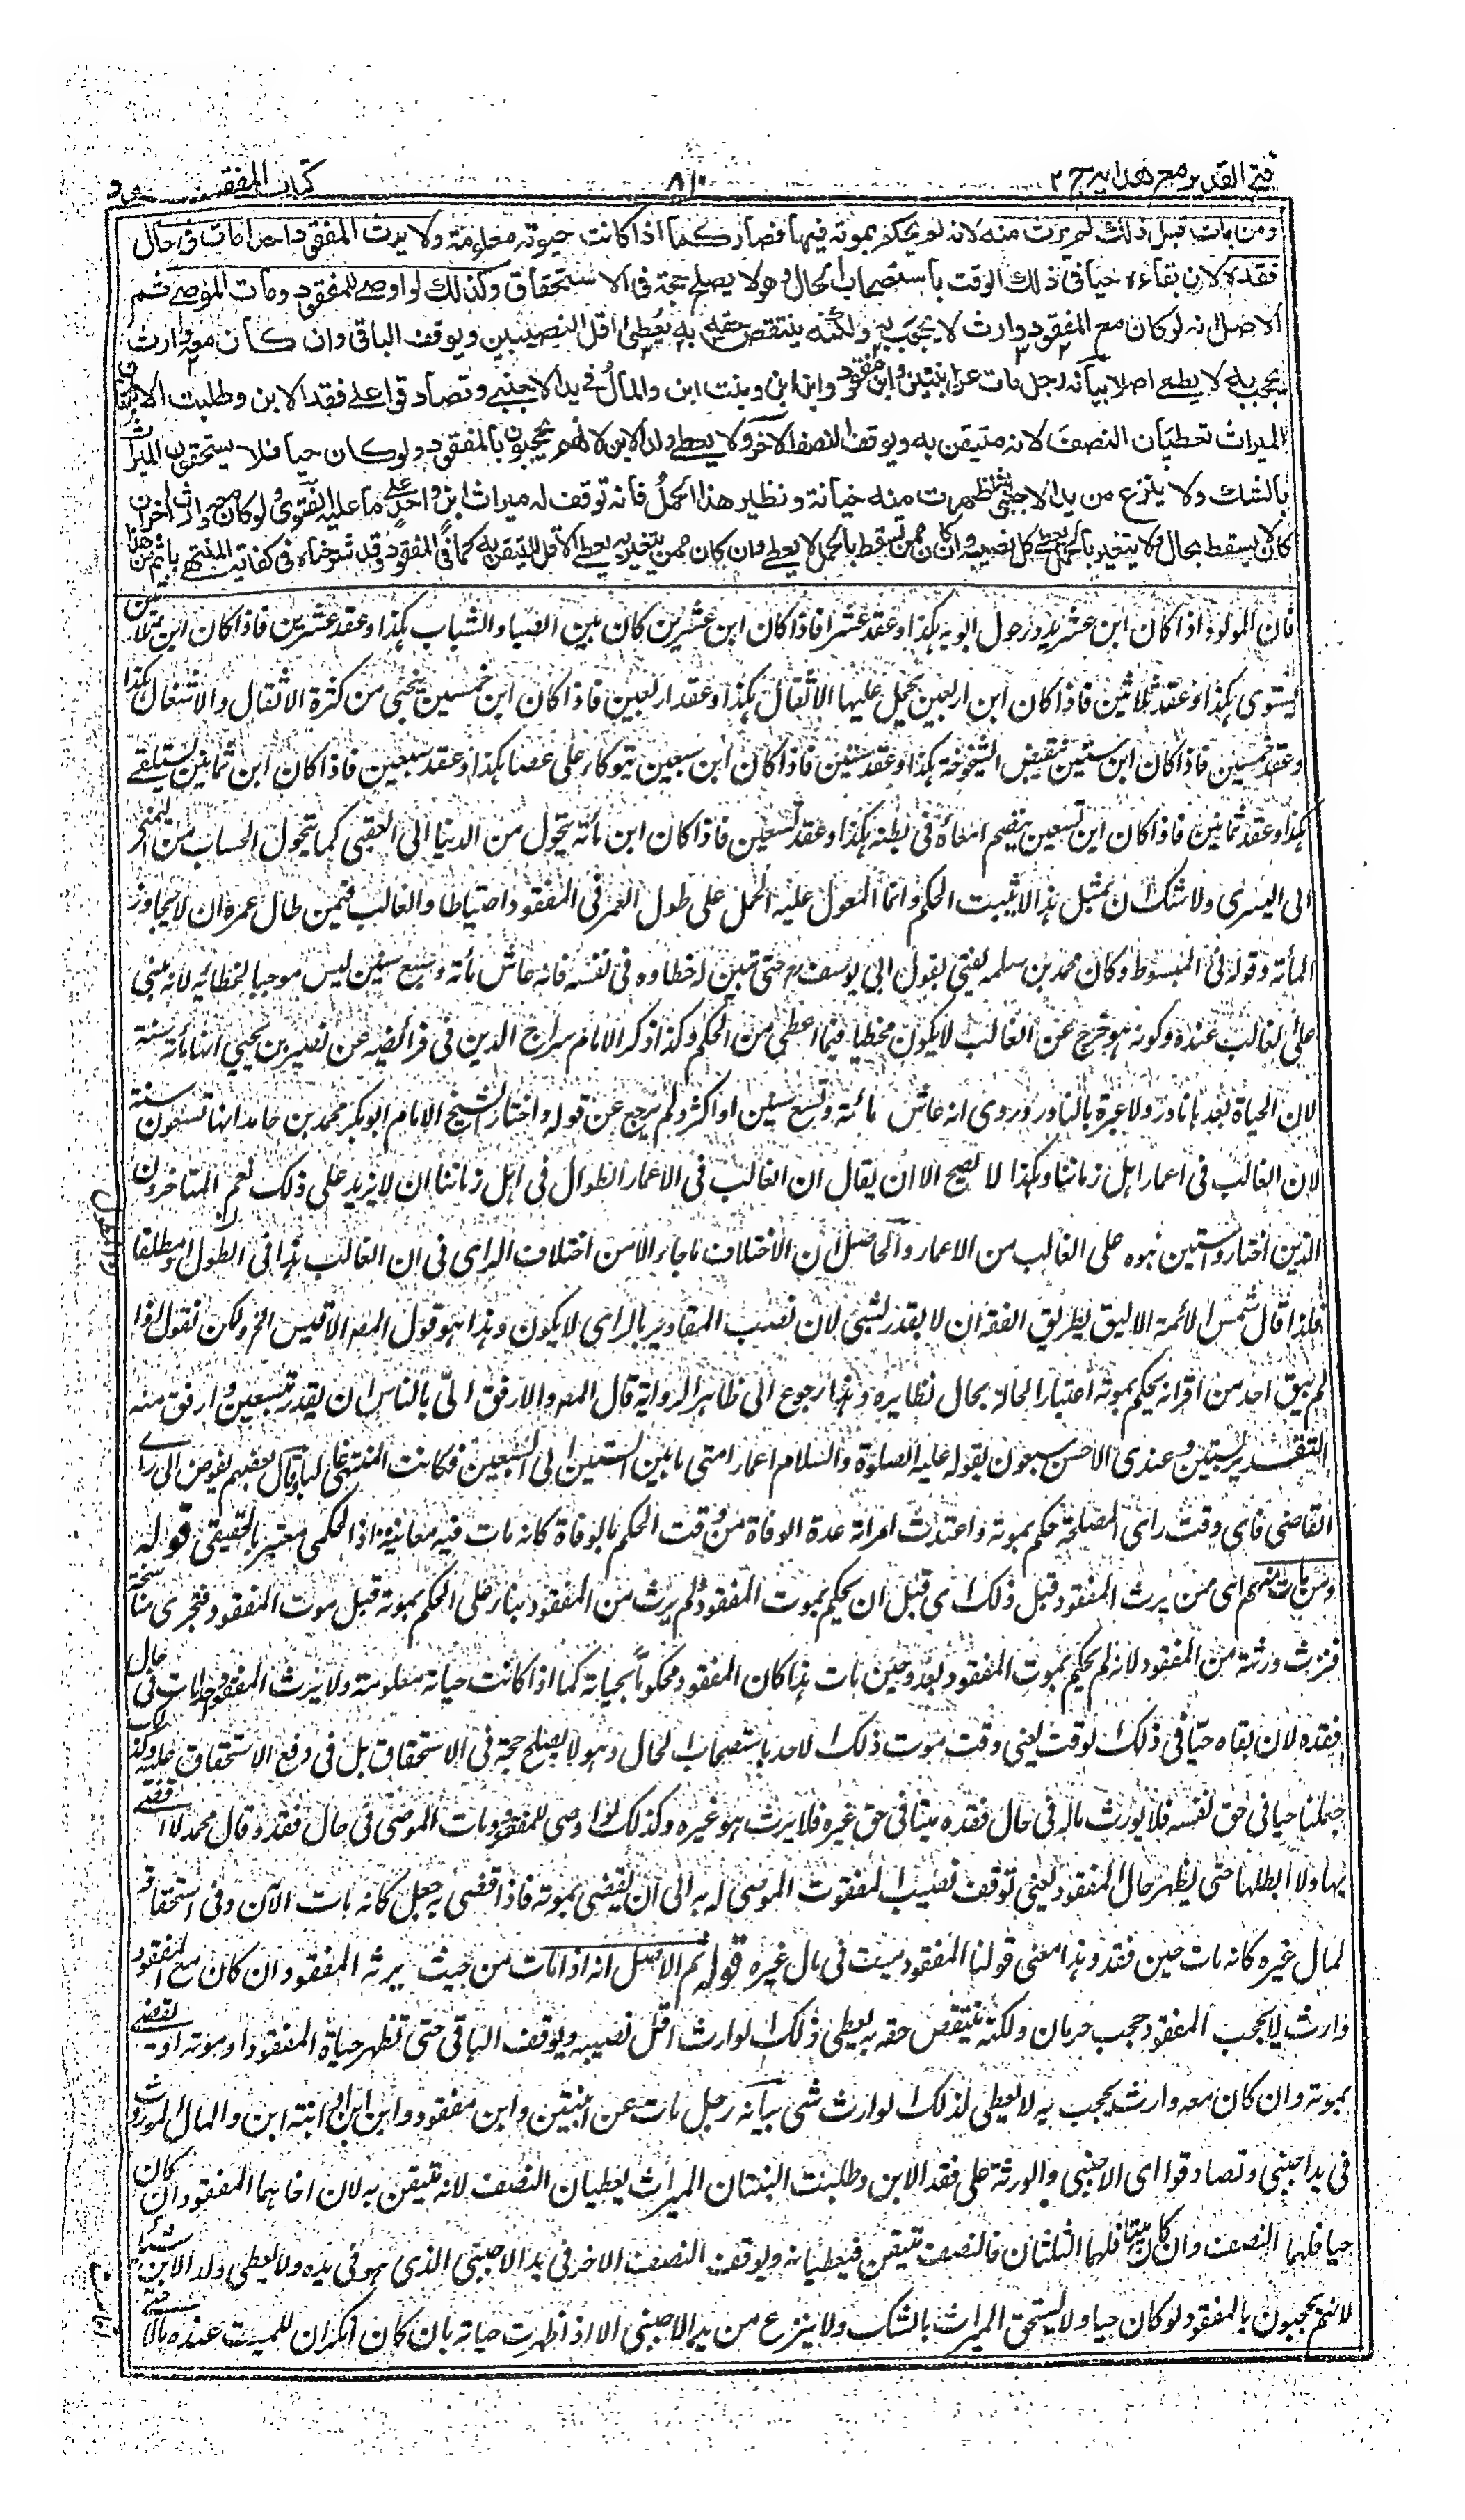 فتح القدير مع هداية ج ٢
٨١٠
كتاب المفقود
ومن مات قبل ذلك لم يرث منه لانه لم يحكم بموته فيها فصار كما اذا كانت حيوته معلومة ولا يرث المفقود احدا مات فى حال
فقده لان بقاءه حيا فى ذلك الوقت باستصحاب الحال وهو لا يصلح حجة فى الاستحقاق وكذلك لو اوصى للمفقود ومات الموصى ثم
الاصل انه لو كان مع المفقود وارث لا يحجب به ولكنه ينتقص حقه به يعطى اقل النصيبين ويوقف الباقى وان كان معه وارث
يحجب به لا يعطى اصلا بيانه رجل مات عن ابنتين وابن مفقود وابن ابن وبنت ابن والمال فى يد الاجنبى وتصادقوا على فقد الابن وطلبت الابنتان
الميراث تعطيان النصف لانه متيقن به ويوقف النصف الآخر ولا يعطى ولد الابن لانهم يحجبون بالمفقود ولو كان حيا فلا يستحقون الميراث
بالشك ولا ينزع من يد الاجنبى الا اذا ظهرت منه خيانة ونظير هذا الحمل فانه توقف له ميراث ابن واحد على ما عليه الفتوى لو كان معه وارث آخر ان
كان لا يسقط بحال ولا يتغير بالحمل يعطى كل نصيبه وان كان ممن يسقط بالحمل لا يعطى وان كان ممن يتغير به يعطى الاقل للتيقن به كما فى المفقود وقد شرحناه فى كفاية المنتهى باتم من هذا
فان المولود اذا كان ابن عشر يدور حول ابويه هكذا وعقد عشرا فاذا كان ابن عشرين كان بين الصبا والشباب هكذا وعقد عشرين فاذا كان ابن ثلاثين
يستوى هكذا وعقد ثلاثين فاذا كان ابن اربعين يحمل عليها الاثقال هكذا وعقد اربعين فاذا كان ابن خمسين ينحنى من كثرة الاثقال والاشغال هكذا
وعقد خمسين فاذا كان ابن ستين ينقبض الشيخوخة هكذا وعقد ستين فاذا كان ابن سبعين يتوكأ على عصا هكذا وعقد سبعين فاذا كان ابن ثمانين يستلقى
هكذا وعقد ثمانين فاذا كان ابن تسعين ينضم امعاؤه فى بطنه هكذا وعقد تسعين فاذا كان ابن مائة يتحول من الدنيا الى العقبى كما يتحول الحساب من اليمنى
الى اليسرى ولا شك ان بمثل هذا لا يثبت الحكم وانما المعول عليه الحمل على طول العمر فى المفقود احتياطا والغالب فيمن طال عمره ان لا يجاوز
المائة وقوله فى المبسوط وكان محمد بن سلمه يفتى بقول ابى يوسف حتى تبين له خطاؤه فى نفسه فانه عاش مائة وسبع سنين ليس موجبا لخطائه لانه مبنى
على الغالب عنده وكونه هو خرج عن الغالب لا يكون مخطيا فيما اعطى من الحكم وكذا ذكر الامام سراج الدين فى فرائضه عن نصير بن يحيى انها مائة سنة
لان الحياة بعدها نادر ولا عبرة بالنادر وروى انه عاش مائة وتسع سنين او اكثر ولم يرجع عن قوله واختار الشيخ الامام ابو بكر محمد بن حامد انها تسعون سنة
لان الغالب فى اعمار اهل زماننا وهكذا لا يصح الا ان يقال ان الغالب فى الاعمار الطوال فى اهل زماننا ان لا يزيد على ذلك نعم المتاخرون
الذين اختاروا ستين بنوه على الغالب من الاعمار والحاصل ان الاختلاف ما جاء الا من اختلاف الراى فى ان الغالب هذا فى الطول او مطلقا
فلذا قال شمس الائمة الاليق بطريق الفقه ان لا يقدر بشئ لان نصب المقادير بالراى لا يكون وهذا هو قول المصر الاقيس الخ ولكن نقول اذا
لم يبق احد من اقرانه يحكم بموته اعتبارا لحاله بحال نظايره وهذا رجوع الى ظاهر الرواية قال المصر والارفق اى بالناس ان يقدر بتسعين وارفق منه
التقدير بستين وعندى الاحسن سبعون لقوله عليه الصلوة والسلام اعمار امتى ما بين الستين الى السبعين فكانت المنتهى غالبا وقال بعضهم يفوض الى راى
القاضى فاى وقت راى المصلحة حكم بموته واعتدت امراته عدة الوفاة من وقت الحكم بالوفاة كانه مات فيه معاينة اذ الحكمى معتبر بالحقيقى قوله
ومن مات منهم اى من يرث المفقود قبل ذلك اى قبل ان يحكم بموت المفقود لم يرث من المفقود بناء على الحكم بموته قبل موت المفقود فتجرى مناسخة
فترث ورثته من المفقود لانه لم يحكم بموت المفقود بعد وحين مات هذا كان المفقود محكوما بحياته كما اذا كانت حياته معلومة ولا يرث المفقود احدا مات فى حال
فقده لان بقاه حيا فى ذلك الوقت يعنى وقت موت ذلك الاحد باستصحاب الحال وهو لا يصلح حجة فى الاستحقاق بل فى دفع الاستحقاق عليه وكذلك
جعلنا حيا فى حق نفسه فلا يورث ماله فى حال فقده ميتا فى حق غيره فلا يرث هو غيره وكذلك لو اوصى للمفقود ومات الموصى فى حال فقده وقال محمد لا اقضى
بها ولا ابطلها حتى يظهر حال المفقود يعنى توقف نصيب المفقود الموصى له به الى ان يقضى بموته فاذا قضى به جعل كانه مات الآن وفى استحقاقه
لمال غيره كانه مات حين فقد وهذا معنى قولنا المفقود ميت فى مال غيره قوله ثم الاصل انه اذا مات من حيث يرثه المفقود ان كان مع المفقود
وارث لا يحجب المفقود حجب حرمان ولكنه ينتقص حقه به يعطى ذلك الوارث اقل نصيبه ويوقف الباقى حتى تظهر حياة المفقود او موته او يقضى
بموته وان كان معه وارث يحجب به لا يعطى لذلك الوارث شئ بيانه رجل مات عن ابنتين وابن مفقود وابن ابن او ابنة ابن والمال الموروث
فى يد اجنبى وتصادقوا اى الاجنبى والورثة على فقد الابن وطلبت البنتان الميراث يعطيان النصف لانه متيقن به لان اخاهما المفقود ان كان
حيا فلهما النصف وان كان ميتا فلهما الثلثان فالنصف متيقن فيعطيانه ويوقف النصف الاخر فى يد الاجنبى الذى هو فى يده ولا يعطى ولد الابن شيئا
لانهم يحجبون بالمفقود لو كان حيا ولا يستحق الميراث بالشك ولا ينزع من يد الاجنبى الا اذا ظهرت خيانة بان كان انكر ان للميت عنده مالا حتى